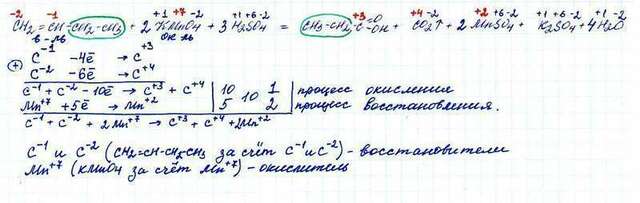 -2 -1 +1 +7 -2 +1 +6 -2 +3 +4 -2 +2 +6 -2 +1 +6 -2 +1 -2
CH2 = CH-CH2-CH3 + 2 KMnO4 + 3 H2SO4 = CH3-CH2-C=O-OH + CO2↑ + 2 MnSO4 + K2SO4 + 4H2O
в-ль ок-ль
C-1 -4ē → C+3
(+) C-2 -6ē → C+4
C-1 + C-2 -10ē → C+3 + C+4 | 10 | 10 | 1 | процесс окисления
Mn+7 +5ē → Mn+2 | 5 | 2 | процесс восстановления.
C-1 + C-2 + 2Mn+7 → C+3 + C+4 + 2Mn+2
C-1 и C-2 (CH2=CH-CH2CH3 за счёт C-1 и C-2) - восстановители
Mn+7 (KMnO4 за счёт Mn+7) - окислитель